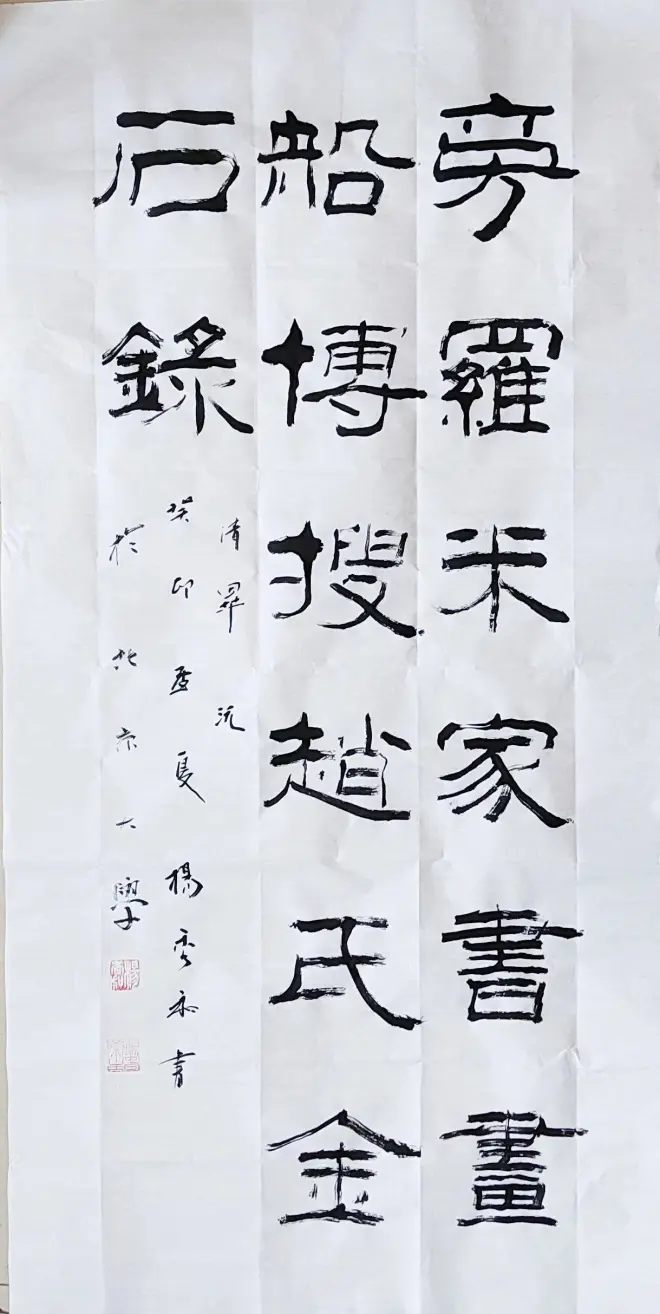 旁羅米家書畫
船博搜趙氏金
石錄
清畢沅
癸卯孟夏楊秀和書
於北京大學